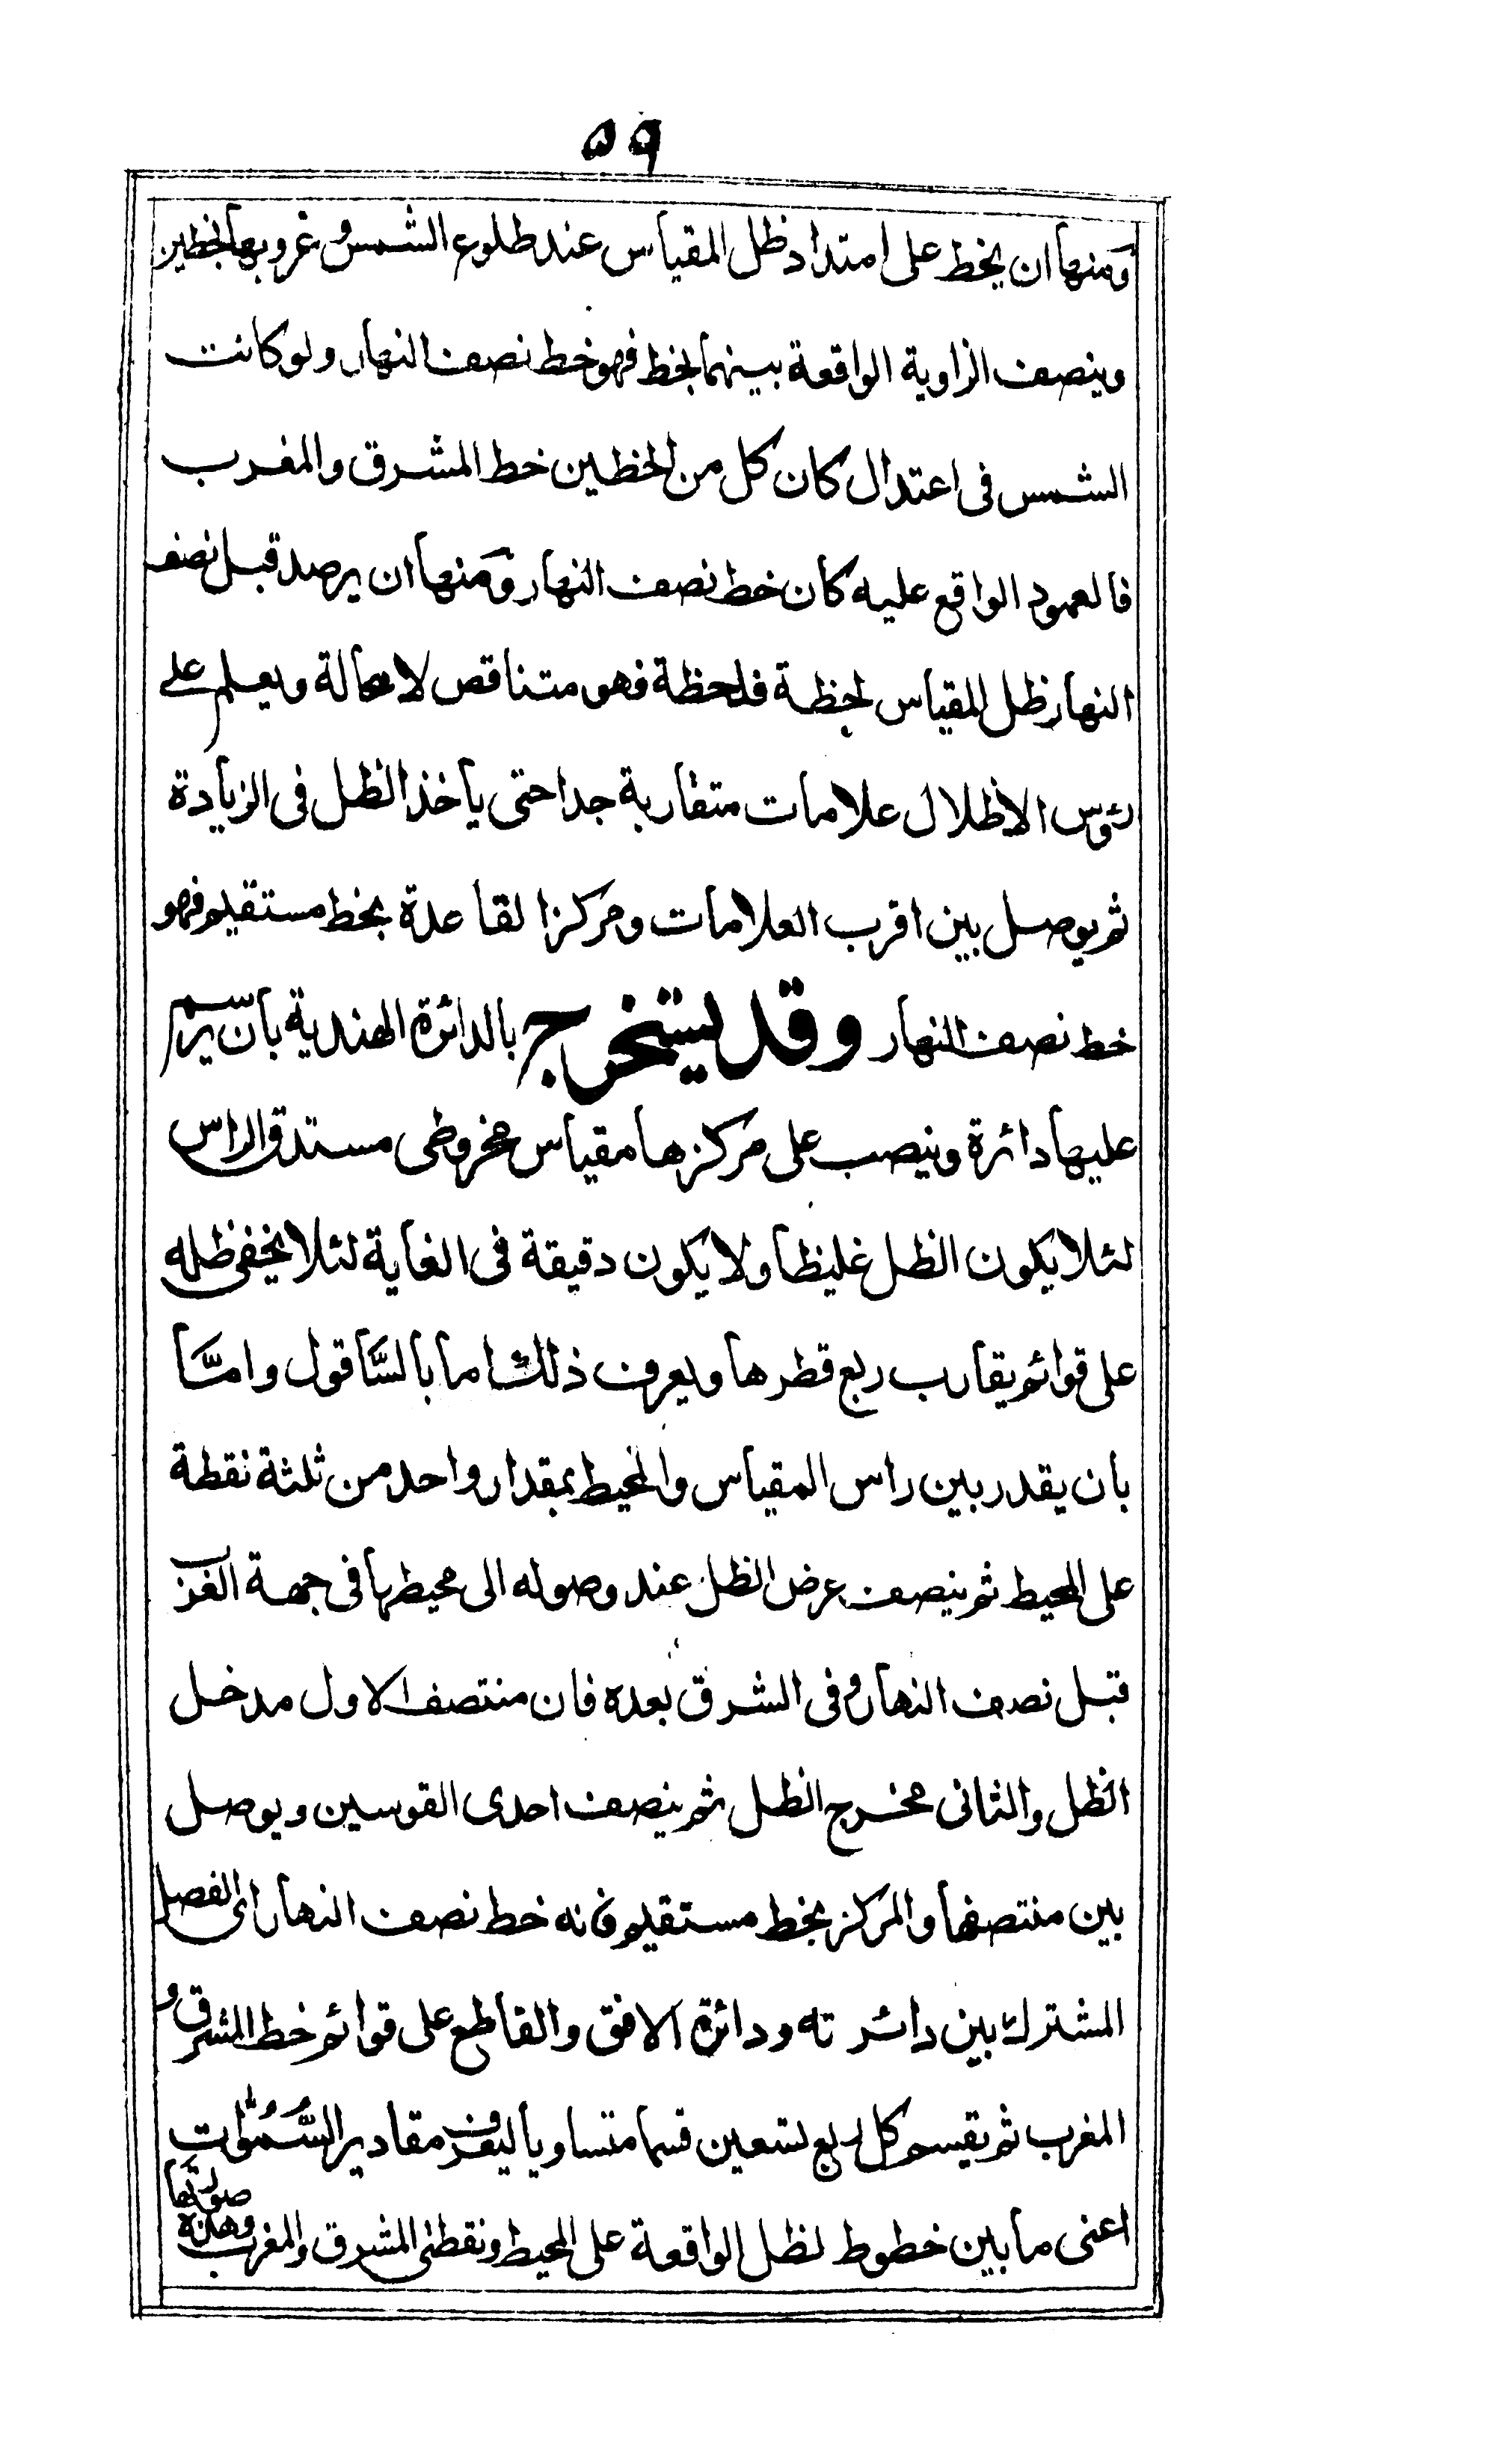 ٥٩
ومنها ان يخط على امتداد ظل المقياس عند طلوع الشمس وغروبها بخطين
وينصف الزاوية الواقعة بينهما بخط فهو خط نصف النهار ولو كانت
الشمس فى اعتدال كان كل من الخطين خط المشرق والمغرب
فالعمود الواقع عليه كان خط نصف النهار ومنها ان يرصد قبل نصف
النهار ظل المقياس لحظة فلحظة فهو متناقص لا محالة ويعلم على
رؤس الاظلال علامات متقاربة جدا حتى ياخذ الظل فى الزيادة
ثم يوصل بين اقرب العلامات ومركز القاعدة بخط مستقيم فهو
خط نصف النهار وقد يستخرج بالدائرة الهندية بان يرسم
عليها دائرة وينصب على مركزها مقياس مخروطى مستدق الراس
لئلا يكون الظل غليظا ولا يكون دقيقة فى الغاية لئلا يخفى ظله
على قوائم يقارب ربع قطرها ويعرف ذلك اما بالسَّاقول وامَّا
بان يقدر بين راس المقياس والمحيط بمقدار واحد من ثلثة نقطة
على المحيط ثم ينصف عرض الظل عند وصوله الى محيطها فى جهة الغرب
قبل نصف النهار وفى الشرق بعده فان منتصف الاول مدخل
الظل والثانى مخرج الظل ثم ينصف احدى القوسين ويوصل
بين منتصفها والمركز بخط مستقيم فانه خط نصف النهار اى الفصل
المشترك بين دائرته ودائرة الافق والقاطع على قوائم خط المشرق و
المغرب ثم يقسم كل ربع تسعين قسما متساويا ليعرف مقادير السُّموات
اعنى ما بين خطوط لظل الواقعة على المحيط ونقطتى المشرق والمغرب وهذه صورتها